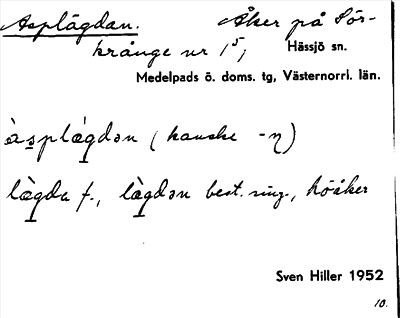 Asplägdan. Åker på Sör-
krånge nr 1⁵, Hässjö sn.
Medelpads ö. doms. tg, Västernorrl. län.
àsplæ̀gdən (kanske -η)
læ̀gda f., læ̀gdən best. sing., höåker
Sven Hiller 1952
10.